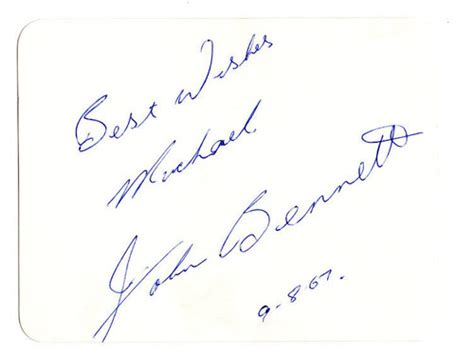 Best Wishes
Michael.
John Bennett
9-8.67.